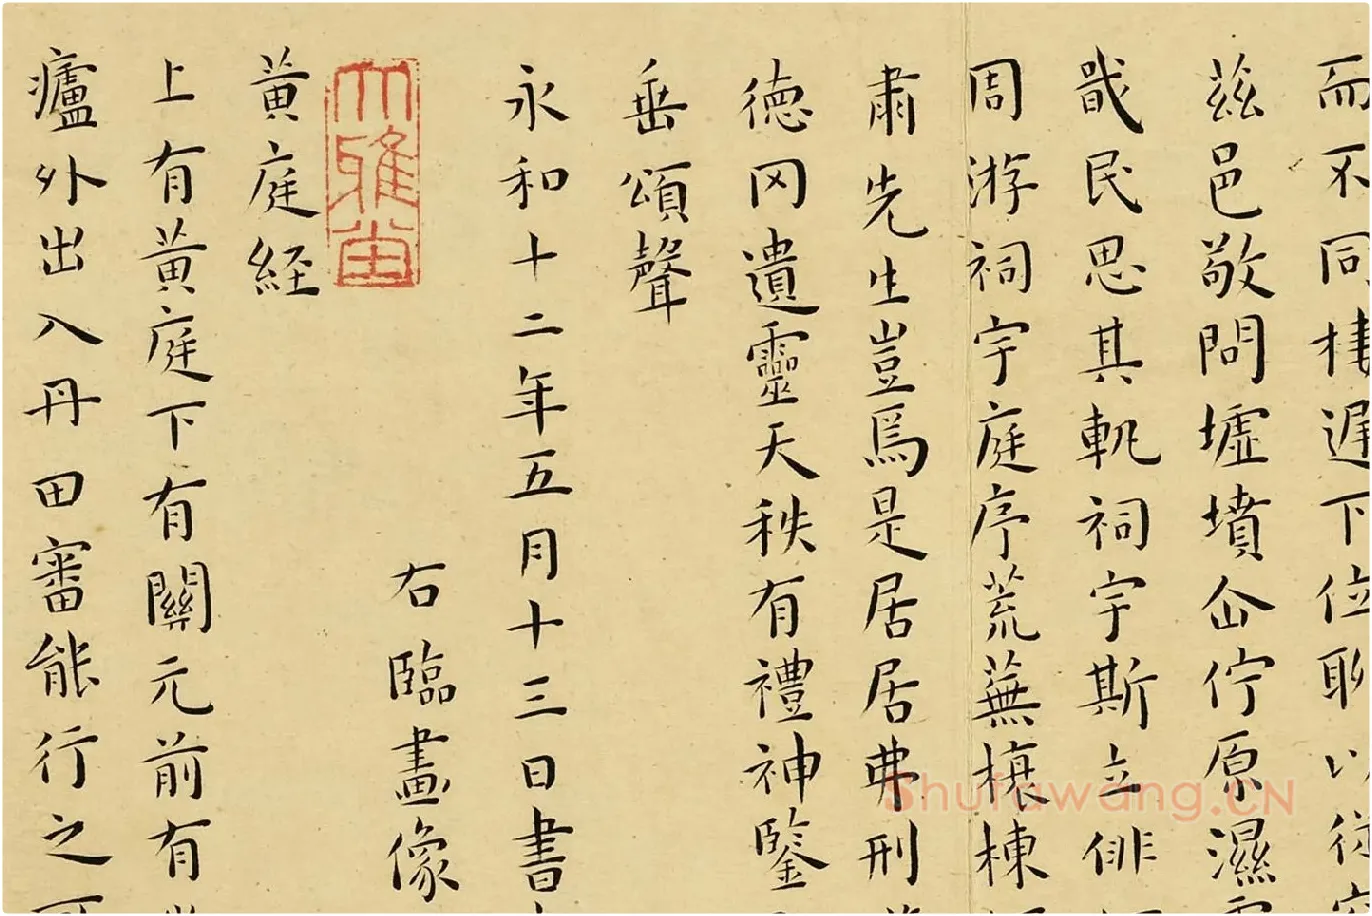 而不同棲遲下位聊以從
茲邑敬問墟墳企佇原濕
戢民思其軌祠宇斯立俳
周游祠宇庭序荒蕪榱棟
肅先生豈焉是居居弗刑
德冈遺靈天秩有禮神鑒
垂頌聲
永和十二年五月十三日書
右臨畫像
大雅堂
黄庭經
上有黄庭下有關元前有
癧外出入丹田審能行之可
Shufawang.CN